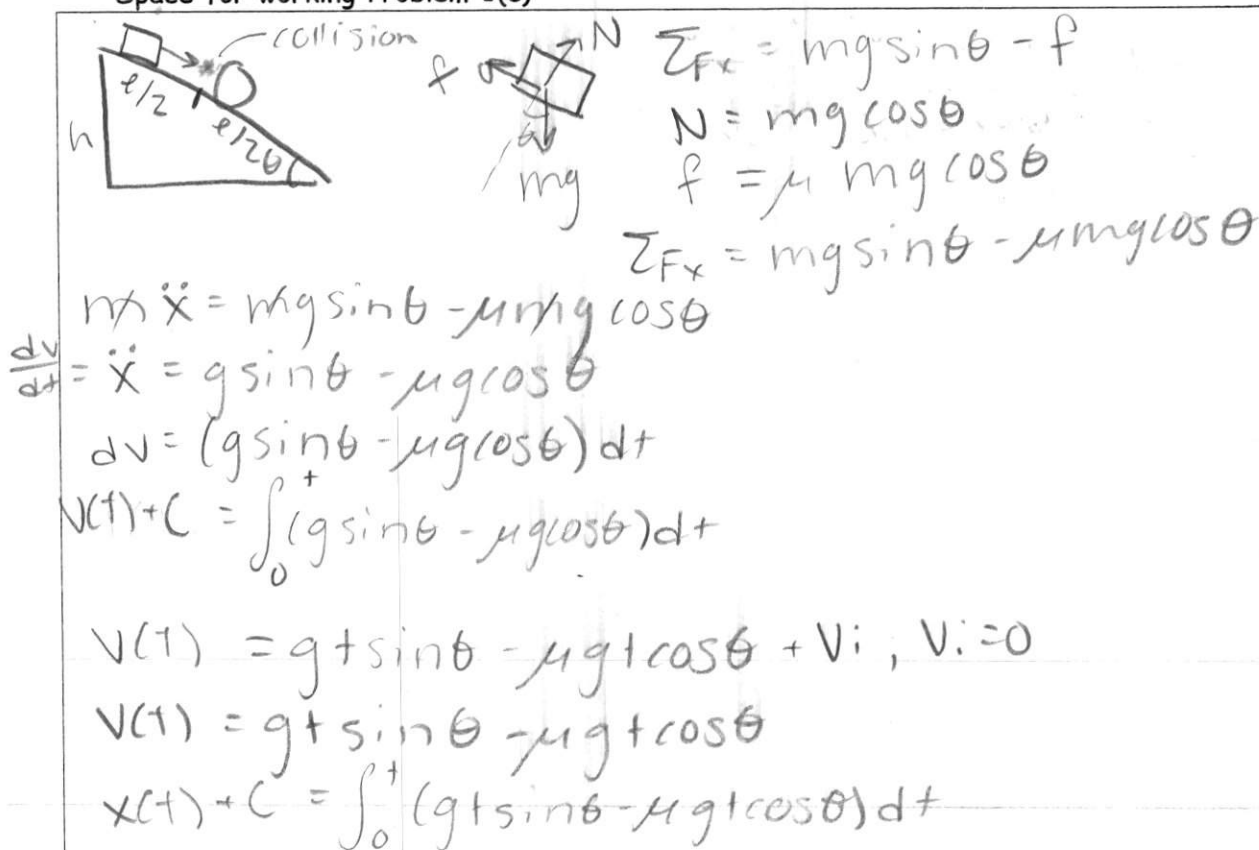 Space for working Problem
collision
N
f
ℓ/2
ℓ/2
θ
h
θ
mg
ΣFx = mg sinθ - f
N = mg cosθ
f = μ mg cosθ
ΣFx = mg sinθ - μmg cosθ
mẍ = mg sinθ - μmg cosθ
dv/dt = ẍ = g sinθ - μg cosθ
dv = (g sinθ - μg cosθ) dt
V(t)+C = ∫₀ᵗ (g sinθ - μg cosθ) dt
V(t) = gt sinθ - μgt cosθ + Vi , Vi = 0
V(t) = gt sinθ - μgt cosθ
x(t)+C = ∫₀ᵗ (gt sinθ - μgt cosθ) dt